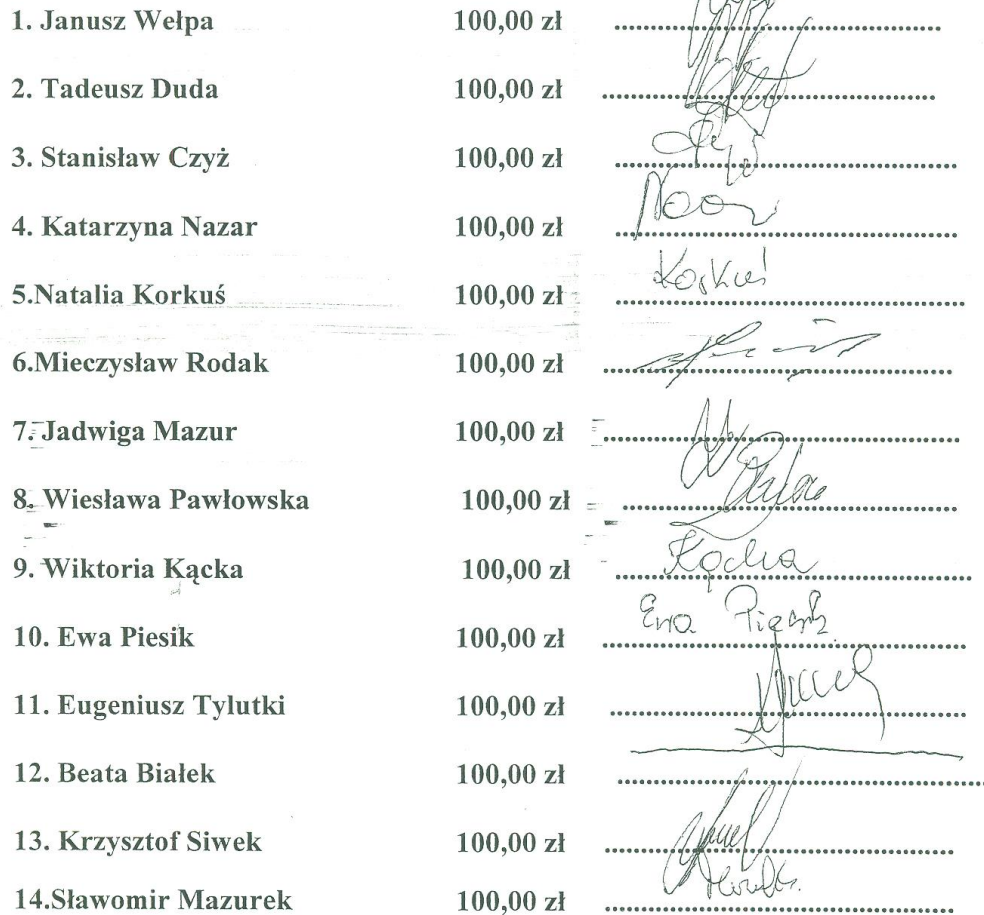 1. Janusz Wełpa 100,00 zł ........................................
2. Tadeusz Duda 100,00 zł ........................................
3. Stanisław Czyż 100,00 zł ........................................
4. Katarzyna Nazar 100,00 zł ........................................
Korkuś
5.Natalia Korkuś 100,00 zł ........................................
6.Mieczysław Rodak 100,00 zł ........................................
7. Jadwiga Mazur 100,00 zł ........................................
8. Wiesława Pawłowska 100,00 zł ........................................
Kącka
9. Wiktoria Kącka 100,00 zł ........................................
Ewa Piesik
10. Ewa Piesik 100,00 zł ........................................
11. Eugeniusz Tylutki 100,00 zł ........................................
12. Beata Białek 100,00 zł ........................................
13. Krzysztof Siwek 100,00 zł ........................................
14.Sławomir Mazurek 100,00 zł ........................................